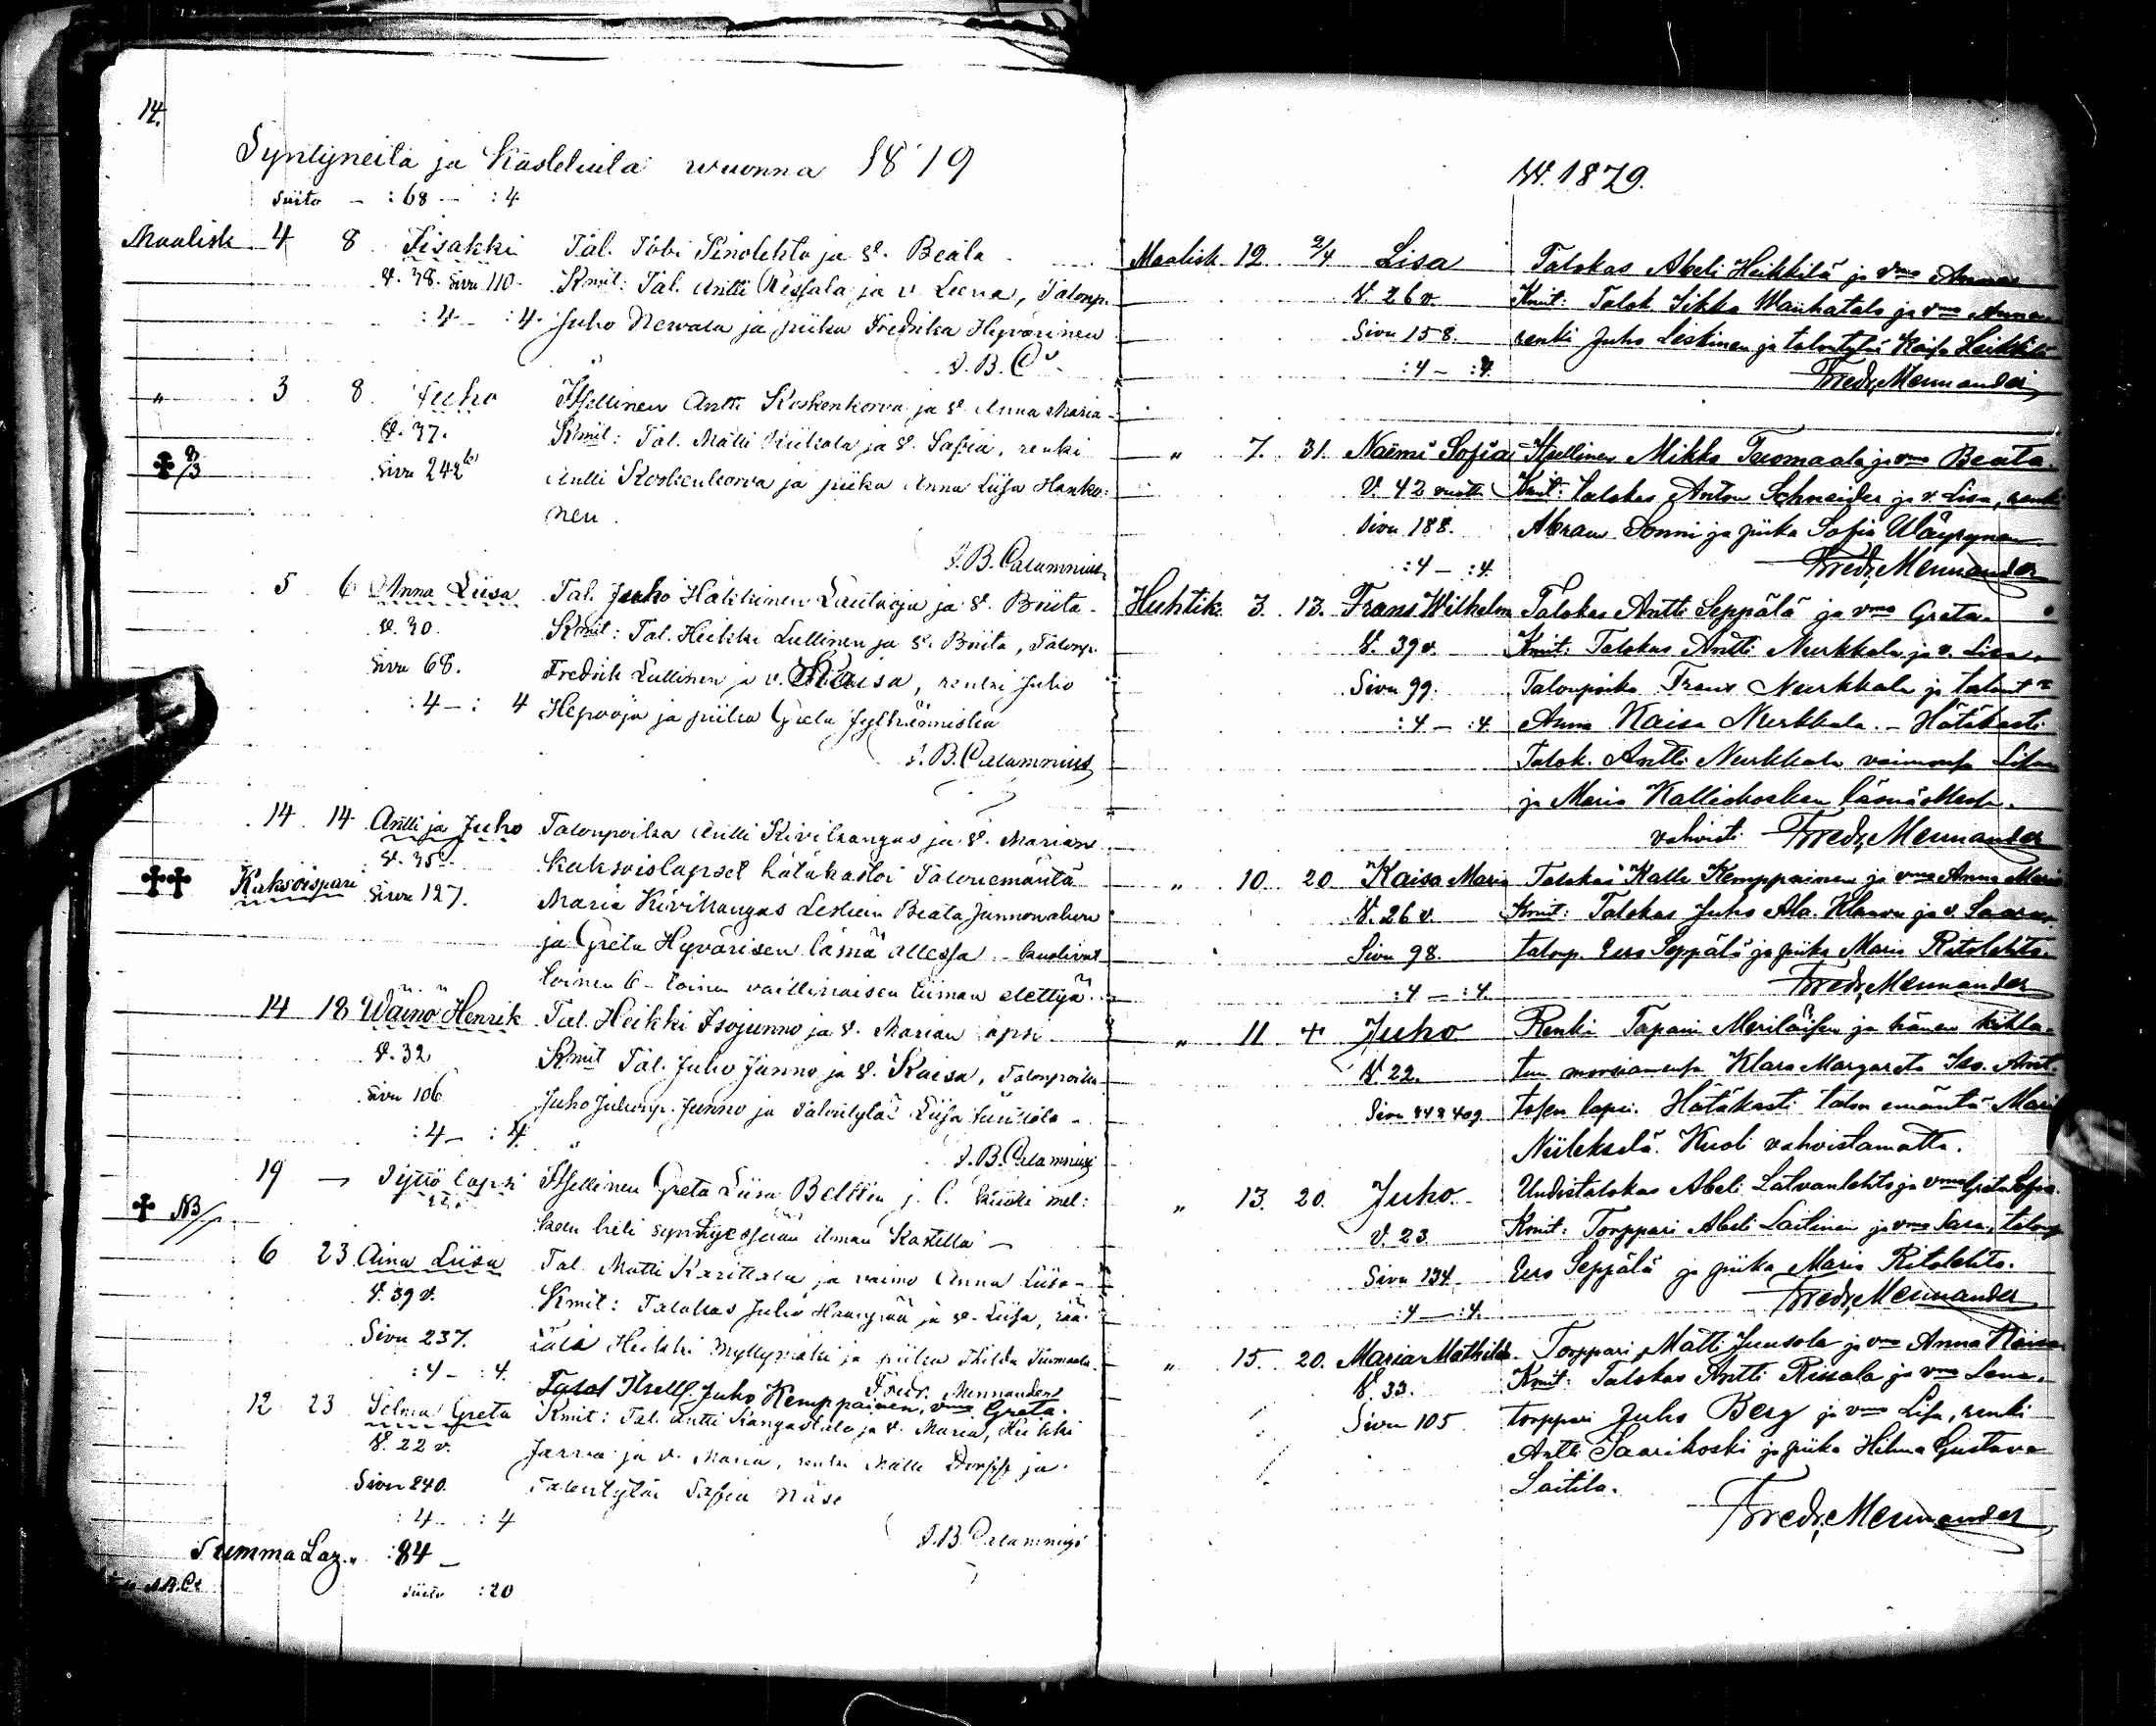 14.
Syntyneitä ja Kastetuita wuonna 1879
Siito - :68 - :4
Maalisk 4 8 Iisakki Tal. Tobi Sinolehto ja v. Beata
V. 38. Sivu 110. Kmit: Tal. Antti Rissala ja v. Leena, Talonp.
:4 - :4. Juho Newala ja piika Fredrika Hyvärinen
J. B. C
" 3 8. Juho Itsellinen Antti Koskenkorva ja v. Anna Maria
V. 37. Kmit: Tal. Matti ja v. Safia, renki
Sivu 242 Antti Koskenkorva ja piika Anna Liisa Hanko:
nen.
J. B. Calamnius
5 6 Anna Liisa Tal. Juho Hakkinen Lautaoja ja v. Briita
V. 30. Kmit: Tal. Heikki Lullinen ja v. Briita, Talonp.
Sivu 68. Fredrik Lullinen ja v. Kaisa, renki Juho
:4 - : 4 Hepo-oja ja piika Greta
J. B. Calamnius
14 14 Antti ja Juho Talonpoika Antti Kivikangas ja v. Marian
V. 35 kaksoislapset hätäkastoi Talonemäntä
Kaksoispari Sivu 127. Maria Kivikangas Lesken Beata
ja Greta Hyvärisen läsnä ollessa kuolivat
toinen 6 - toinen vaillinaisen tiiman elettyä.
14 18 Wäinö Henrik Tal. Heikki Isojunno ja v. Marian lapsi
V. 32 Kmit Tal. Juho Junno ja v. Kaisa, Talonpoika
Sivu 106 Juho Junno ja Talontytär Liisa
:4 - :4
J. B. Calamnius
19 - Tyttö lapsi Itsellinen Greta Liisa j. l.
NB/ syntyessään ilman Kastetta -
6 23 Aina Liisa Tal. Matti Karittala ja vaimo Anna Liisa
V. 39 v. Kmit: Talokas Juho ja v. Liisa, rää:
Sivu 237. täli Heikki Myllymäki ja piika Thilda Tuomaala.
:4 - :4. Fredr. Mennander
Talol Itsell. Juho Kemppainen, vmo Greta.
12 23 Selma Greta Kmit: Tal. Antti Kangastalo ja v. Maria, Heikki
V. 22 v. Jarva ja v. Maria, renki Matti ja
Sivu 240. Talontytär Safia Näse
:4 - :4
J. B. Calamnius
Summa Laz. :84 -
Siito :20
W. 1879.
Maalisk. 12. 2/4 Lisa Talokas Abeli Heikkilä ja vmo Anna
V 26 v. Kmit: Talok Iikka Wanhatalo ja vmo Anna
Sivu 158. renki Juho Leskinen ja talontytär Kaisa Heikkilä
:4 - :4. Fredr. Mennander
" 7. 31. Naëmi Sofia Itsellinen Mikko Tuomaala ja vmo Beata.
V. 42 vuotta Kmit: talokas Anton Schneider ja v. Lisa, renki
Sivu 188. Abram Sonni ja piika Sofia Wäyrynen
:4 - :4. Fredr. Mennander
Huhtik. 3. 13. Frans Wilhelm Talokas Antti Seppälä ja vmo Greta.
V. 39 v. Kmit: Talokas Antti Nurkkala ja v. Lisa,
Sivu 99. Talonpoika Frans Nurkkala ja talont.
:4 - :4. Anna Kaisa Nurkkala. - Hätäkasti
Talok. Antti Nurkkala vaimonsa Lisan
ja Maria Kalliokosken läsnäollessa.
vahvisti Fredr. Mennander
" 10 20 Kaisa Maria Talokas Kalle Kemppainen ja vmo Anna Maria
V. 26 v. Kmit: Talokas Juho Ala-Klaavu ja v. Saara,
Sivu 98. talonp. Eero Seppälä ja piika Maria Ritolehto.
:4 - :4. Fredr. Mennander
" 11 + Juho Renki Tapani Meriläisen ja hänen kihla-
V 22. tun morsiamensa Klara Margareta Iso-Ant-
Sivu 242 409 tosen lapsi. Hätäkasti talon emäntä Maria
Niileksilä. Kuoli vahvistamatta.
" 13. 20. Juho. Uudistalokas Abeli Latvanlehto ja vmo Greta Sofia.
V. 23. Kmit: Torppari Abeli Laitinen ja vmo Sara, talonp
Sivu 134. Eero Seppälä ja piika Maria Ritolehto.
:4 - :4. Fredr. Mennander
" 15. 20. Maria Mathilda. Torppari Matti Juusola ja vmo Anna Kaisa
V. 33. Kmit: Talokas Antti Rissala ja vmo Lena.
Sivu 105 torppari Juho Berg ja vmo Lisa, renki
Antti Saarikoski ja piika Hilma Gustava
Laitila.
Fredr. Mennander